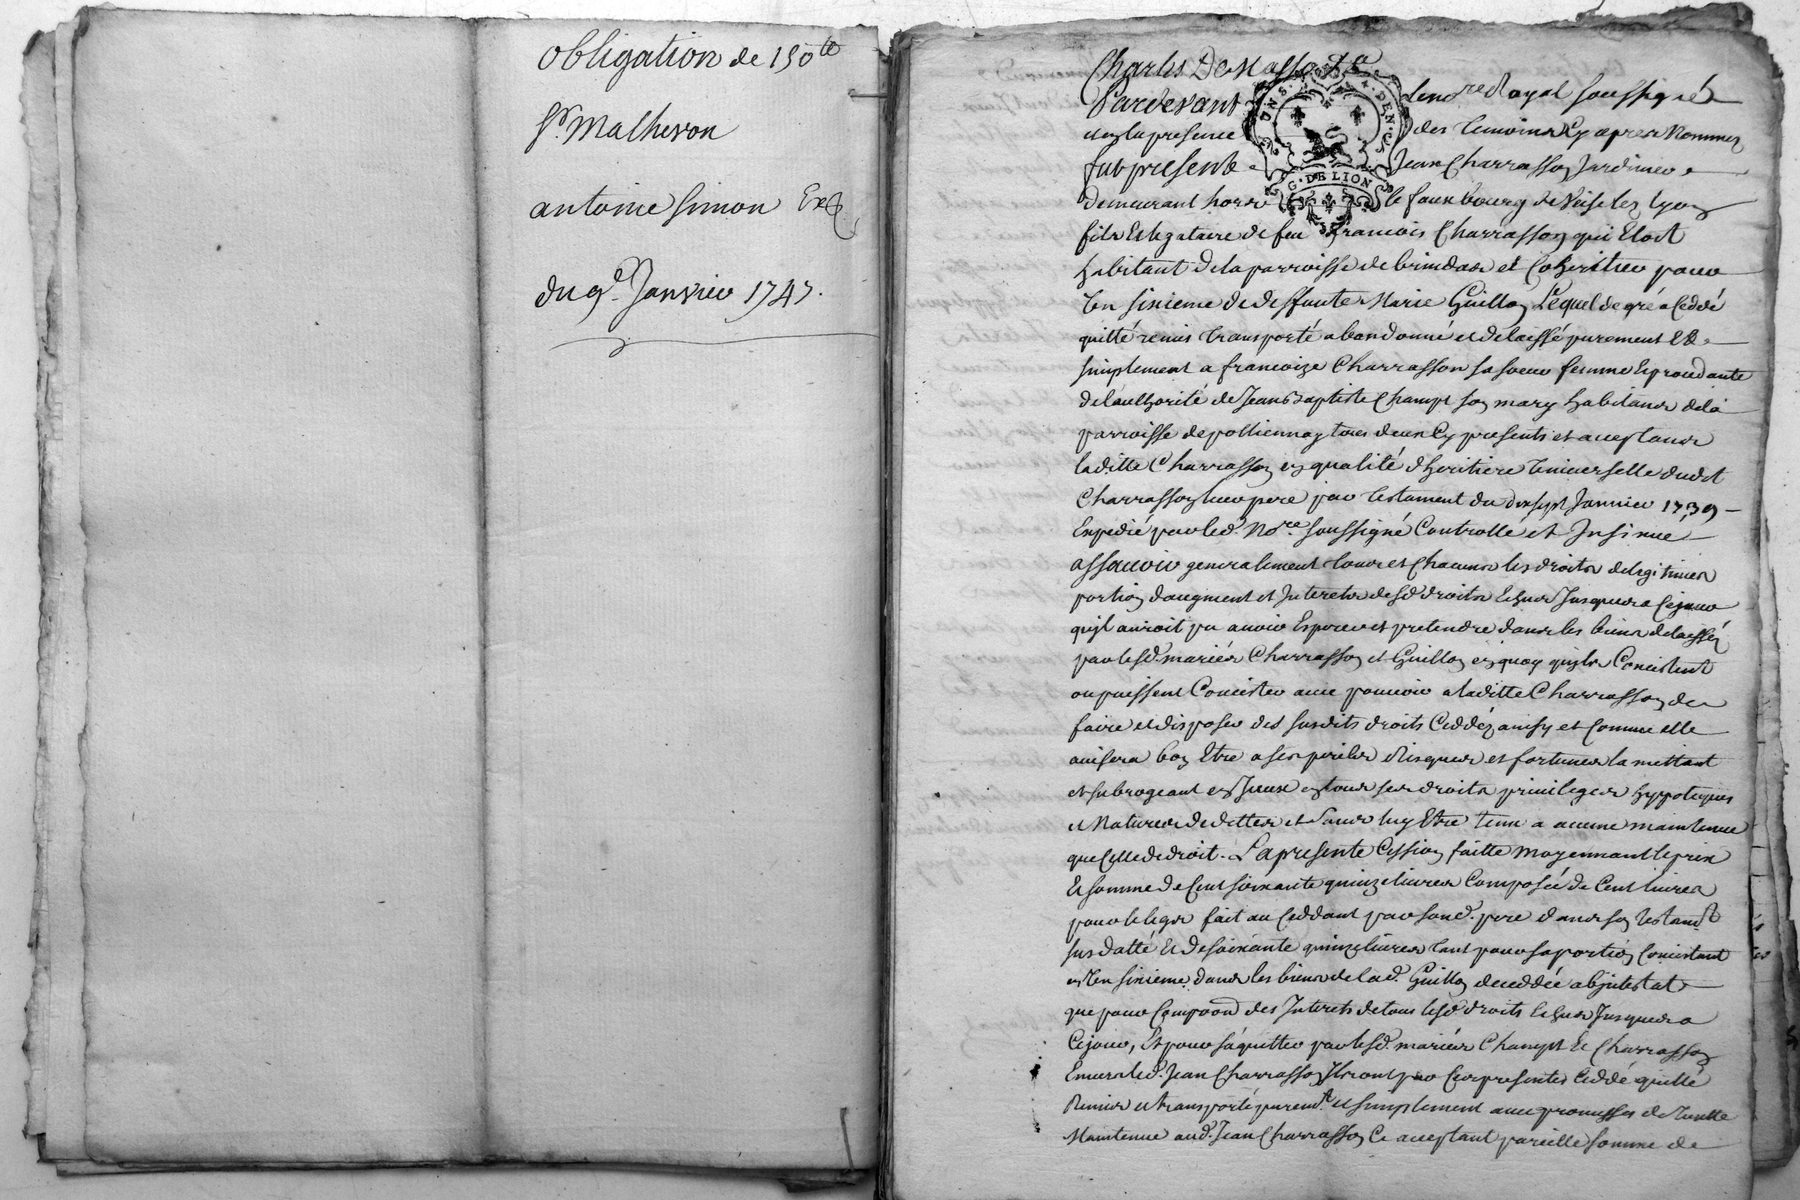 obligation de 150 lt
Sr. Matheron
antoine simon Exp
du 9e. Janvier 1747.
Charles De Masso
Pardevant le no.re Royal soussigné
et en la presence des temoins Cy apres Nommez
fut present Jean Charrasson Jardinier
demeurant hors le faux bourg de Veise lez Lyon
fils et legataire de feu francois Charrasson qui Etoit
habitant de la parroisse de brindas et Coheritier pour
Un sixieme de deffunte Marie Guillon, Lequel de gré a Ceddé
quitté remis transporté abandonné et delaissé purement Et
simplement a francoize Charrasson sa soeur femme Et procedante
de l'authorité de Jean Baptiste Champt son mary habitans de la
parroisse de pollionnay tous deux Cy presents et acceptants
laditte Charrasson en qualité d'heritiere Universelle dudt
Charrasson leur pere par testament du dix sept Janvier 1739
Expedié par led. No.re soussigné Controllé et Insinué
assavoir generalement tous et Chacuns les droits de legitimes
portion d'augment et Interets desd. droits Echus Jusques a Ce jour
qu'il auroit pu avoir Esperer et pretendre dans les biens delaissés
par lesd. mariés Charrasson et Guillon en quoy qu'ils Concistent
ou puissent Concister avec pouvoir a laditte Charrasson de
faire et disposer des susdits droits Ceddéz ainsy et Comme elle
avisera bon Etre a ses perils Risques et fortunes la mettant
et subrogeant en Iceux en tous ses droits privileges hypoteques
et Natures de dettes et sans luy Etre tenu a aucune maintenue
que Celle de droit. La presente Cession faitte moyennant le prix
Et somme de Cent soixante quinze livres Composée de Cent livres
pour le legs fait au Ceddant par sond. pere dans son testamt
sus datté Et de soixante quinze livres tant pour sa portion Concistant
en Un sixieme dans les biens de lad. Guillon deceddée abintestat
que pour Compoon des Interets de tous lesd. droits Echus Jusques a
Ce jour, Et pour s'aquitter par lesd. mariés Champt Et Charrasson
Envers led. Jean Charrasson Ils ont par Ces presentes Ceddé quitté
Remis et transporté purem.t et simplement avec promesses de
Maintenue aud. Jean Charrasson Ce acceptant pareille somme de
G. DE LION